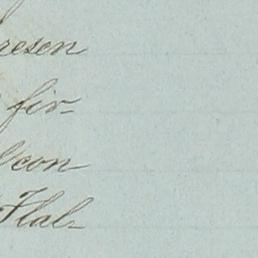 resen
fir-
con
Hal-